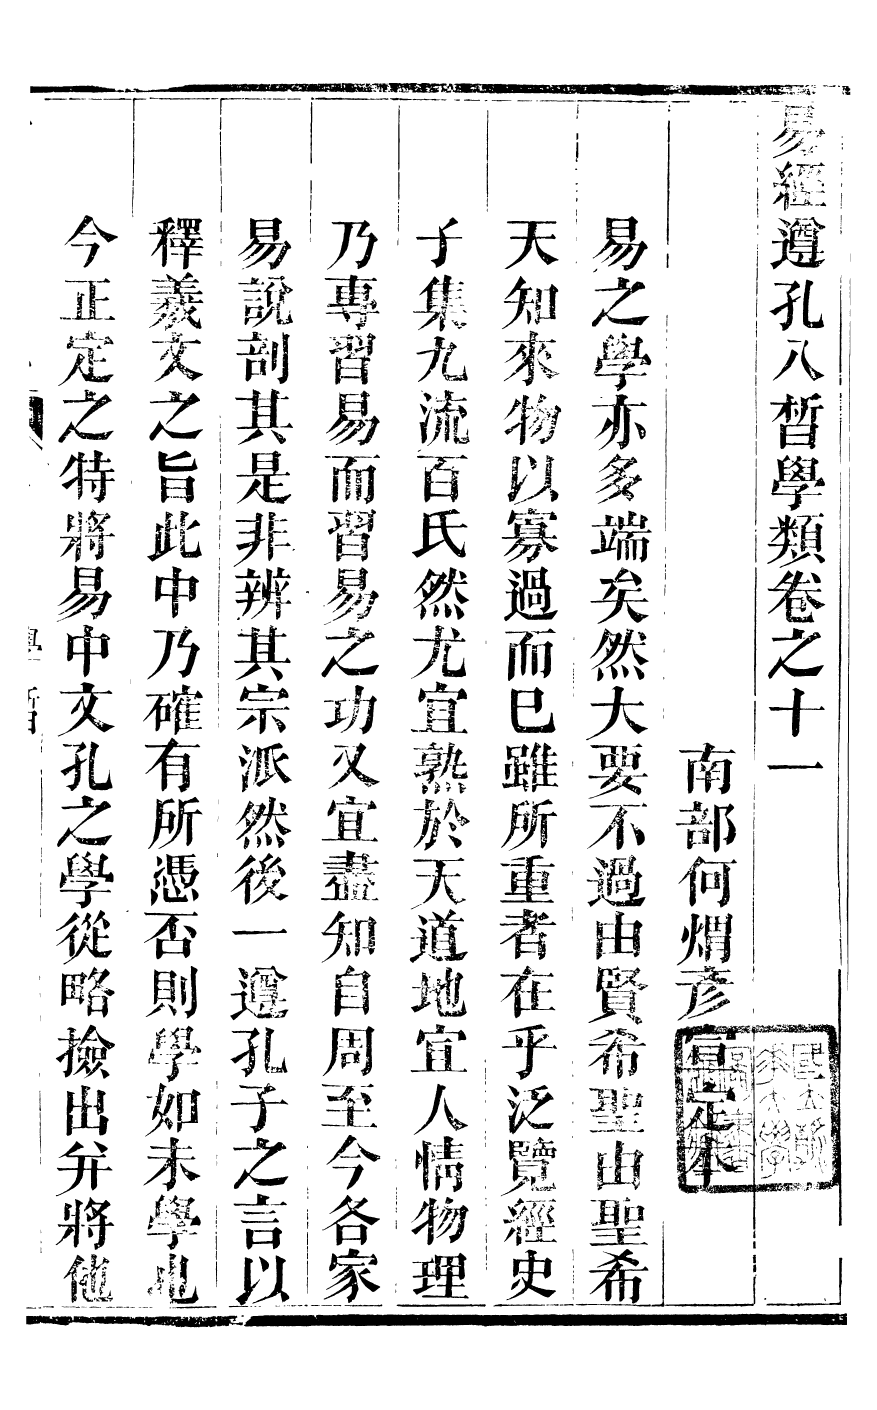 易經遵孔八晳學類卷之十一
南部何焆彦宣定本
易之學亦多端矣然大要不過由賢希聖由聖希
天知來物以寡過而已雖所重者在乎泛覽經史
子集九流百氏然尤宜熟於天道地宜人情物理
乃專習易而習易之功又宜盡知自周至今各家
易說剖其是非辨其宗派然後一遵孔子之言以
釋羲文之旨此中乃確有所憑否則學如未學也
今正定之特將易中文孔之學從略撿出幷將他
學晳